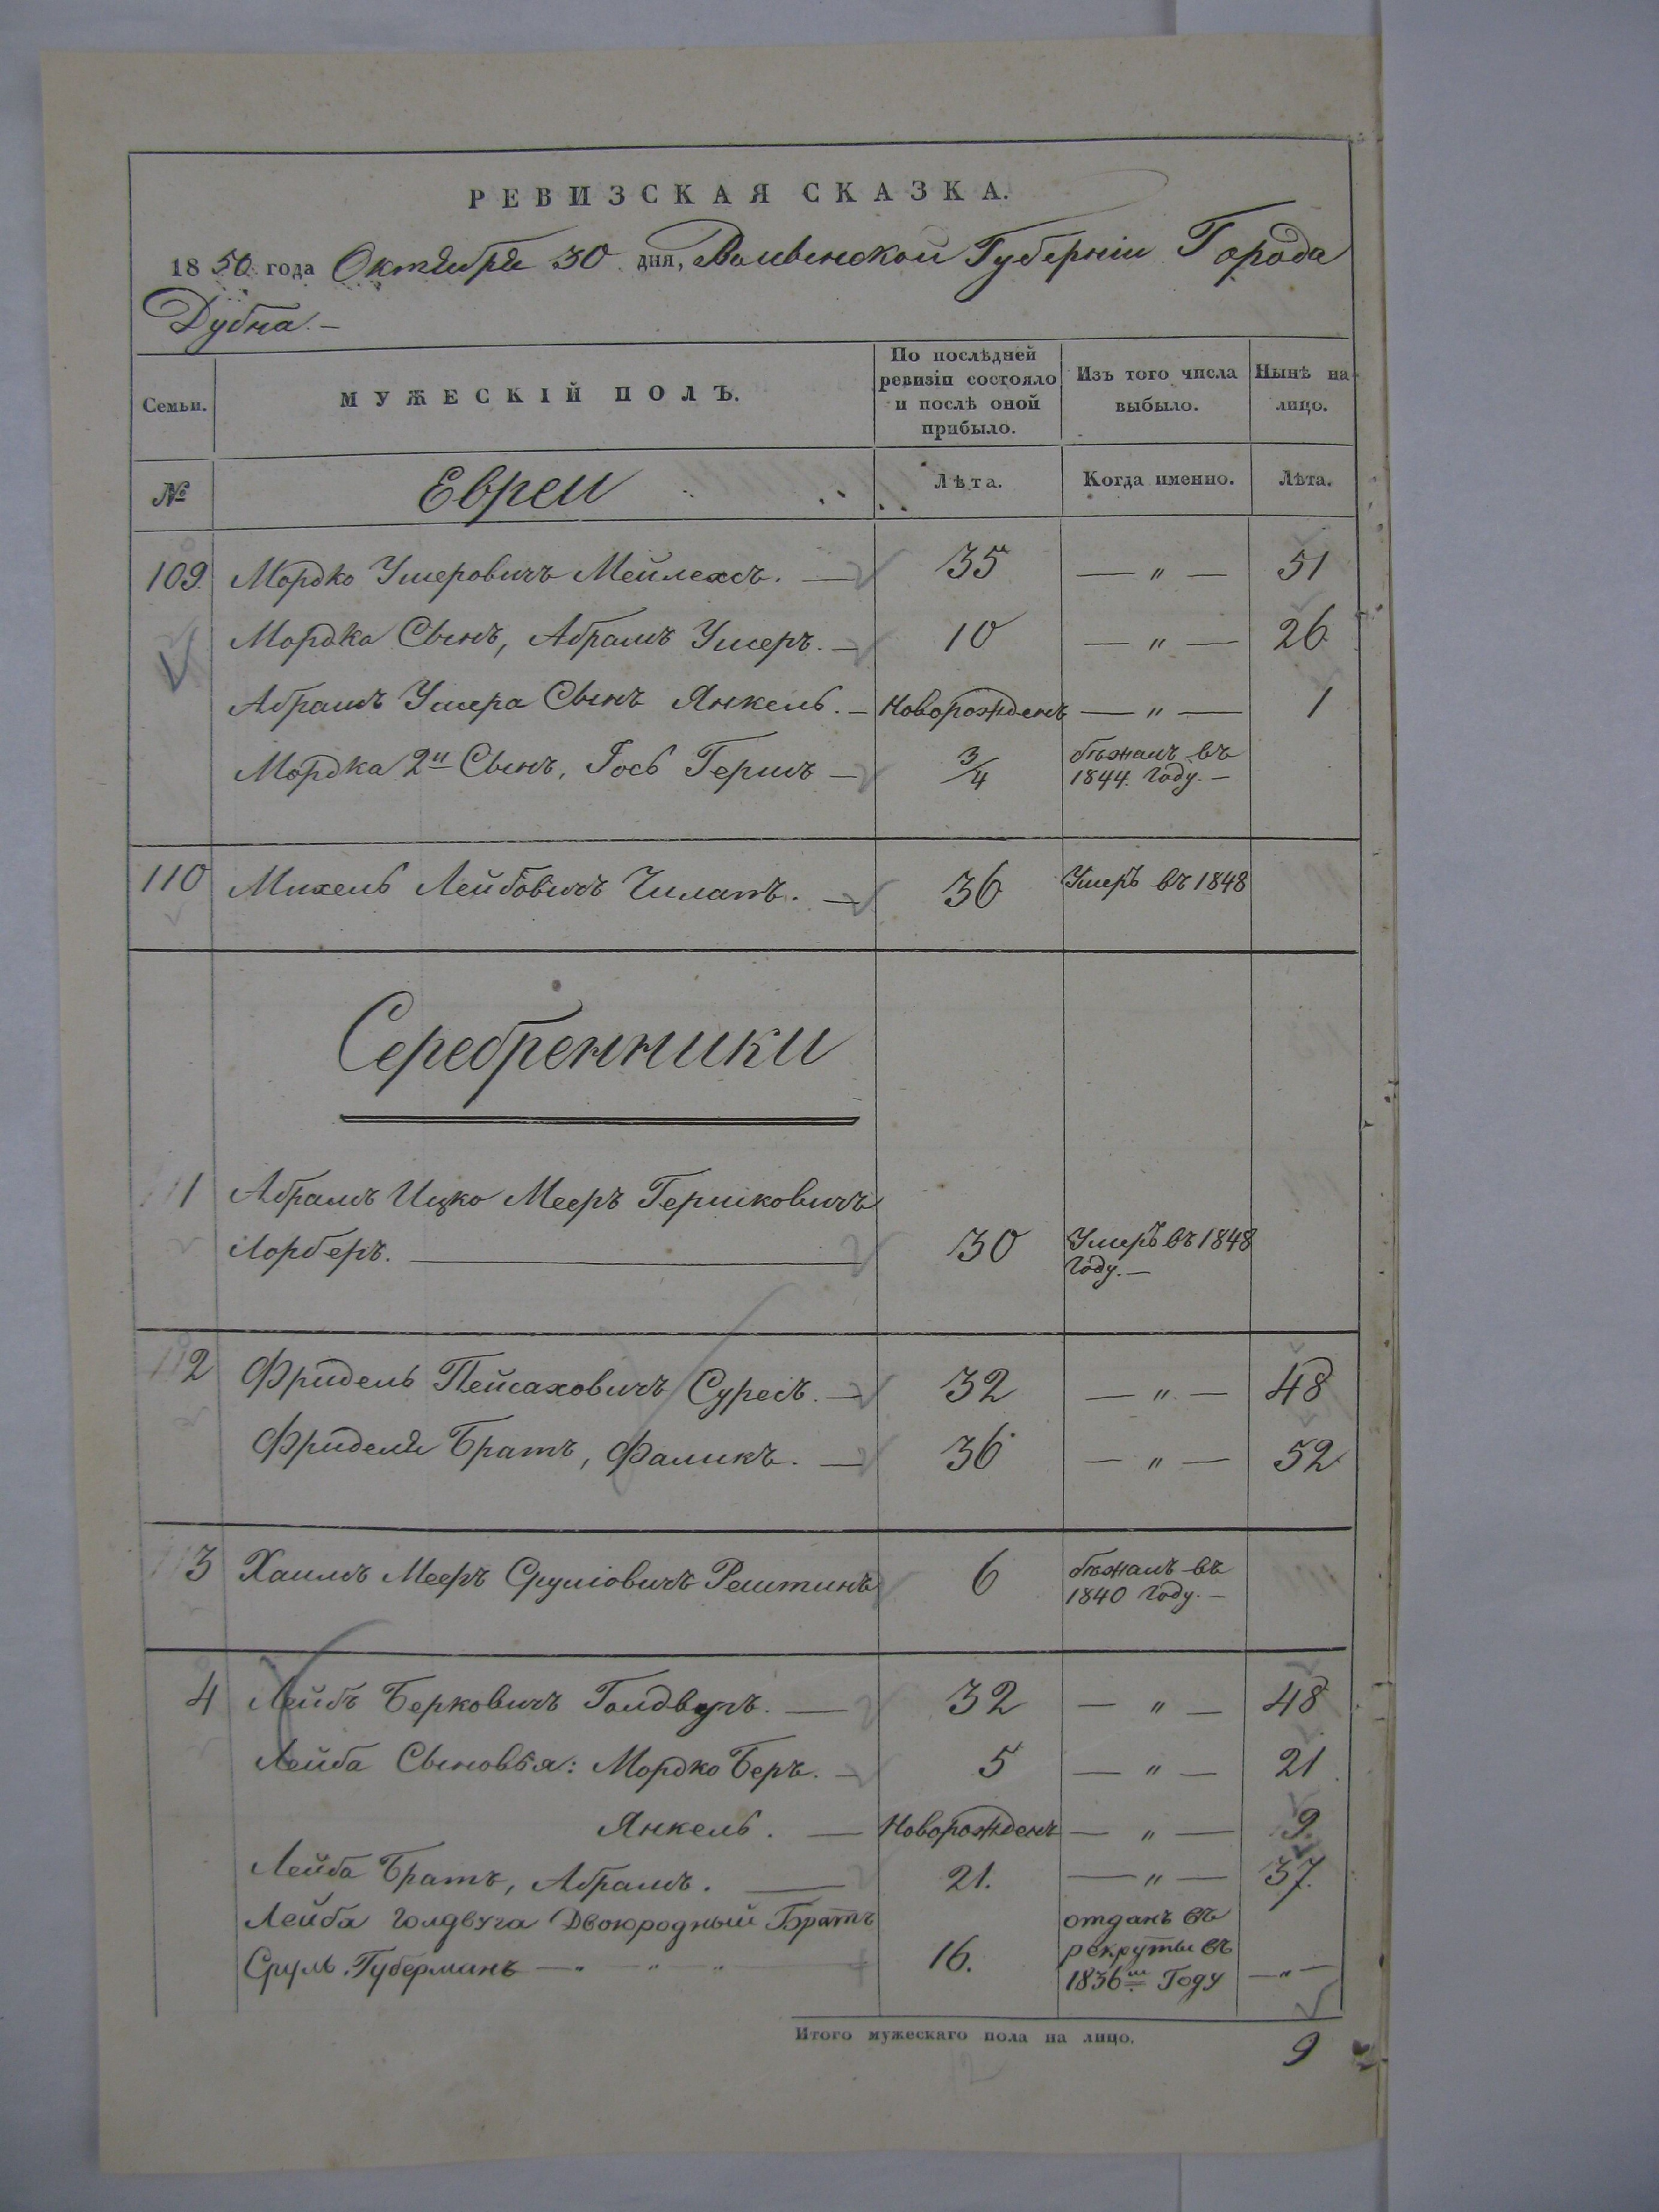 РЕВИЗСКАЯ СКАЗКА.
1850 года Октября 30 дня, Волынской Губерніи Города
Дубна. —
Семьи.
МУЖЕСКІЙ ПОЛЪ.
По послѣдней
ревизіи состояло
и послѣ оной
прибыло.
Изъ того числа
выбыло.
Нынѣ на-
лицо.
№ Евреи Лѣта. Когда именно. Лѣта.
109. Мордко Умеровичъ Мейлехсъ. — 35 — " — 51
Мордка Сынъ, Абрамъ Умеръ. — 10 — " — 26
Абрамъ Умера Сынъ Янкель. — Новорожденъ — " — 1
Мордка 2й Сынъ, Іось Гершъ — 3/4 бѣжалъ въ
1844. Году. —
110 Михель Лейбовичъ Чилатъ. — 36 Умеръ въ 1848
Серебренники
1 Абрамъ Ицко Мееръ Гершковичъ
Лорберъ. — 30 Умеръ въ 1848
Году. —
2 Фридель Пейсаховичъ Суресъ. — 32 — " — 48
Фриделя Братъ, Фаликъ. — 36 — " — 52
3 Хаимъ Мееръ Сруліовичъ Рештинъ 6 бѣжалъ въ
1840 Году. —
4 Лейбъ Берковичъ Голдвугъ. — 32 — " — 48
Лейба Сыновья: Мордко Беръ. — 5 — " — 21
Янкель. — Новорожденъ — " — 9.
Лейба Братъ, Абрамъ. — 21. — " — 37.
Лейба Голдвуга Двоюродный Братъ
Сруль Губерманъ — " " " 16. отданъ въ
рекруты въ
1836м Году — " —
Итого мужескаго пола на лицо. 9